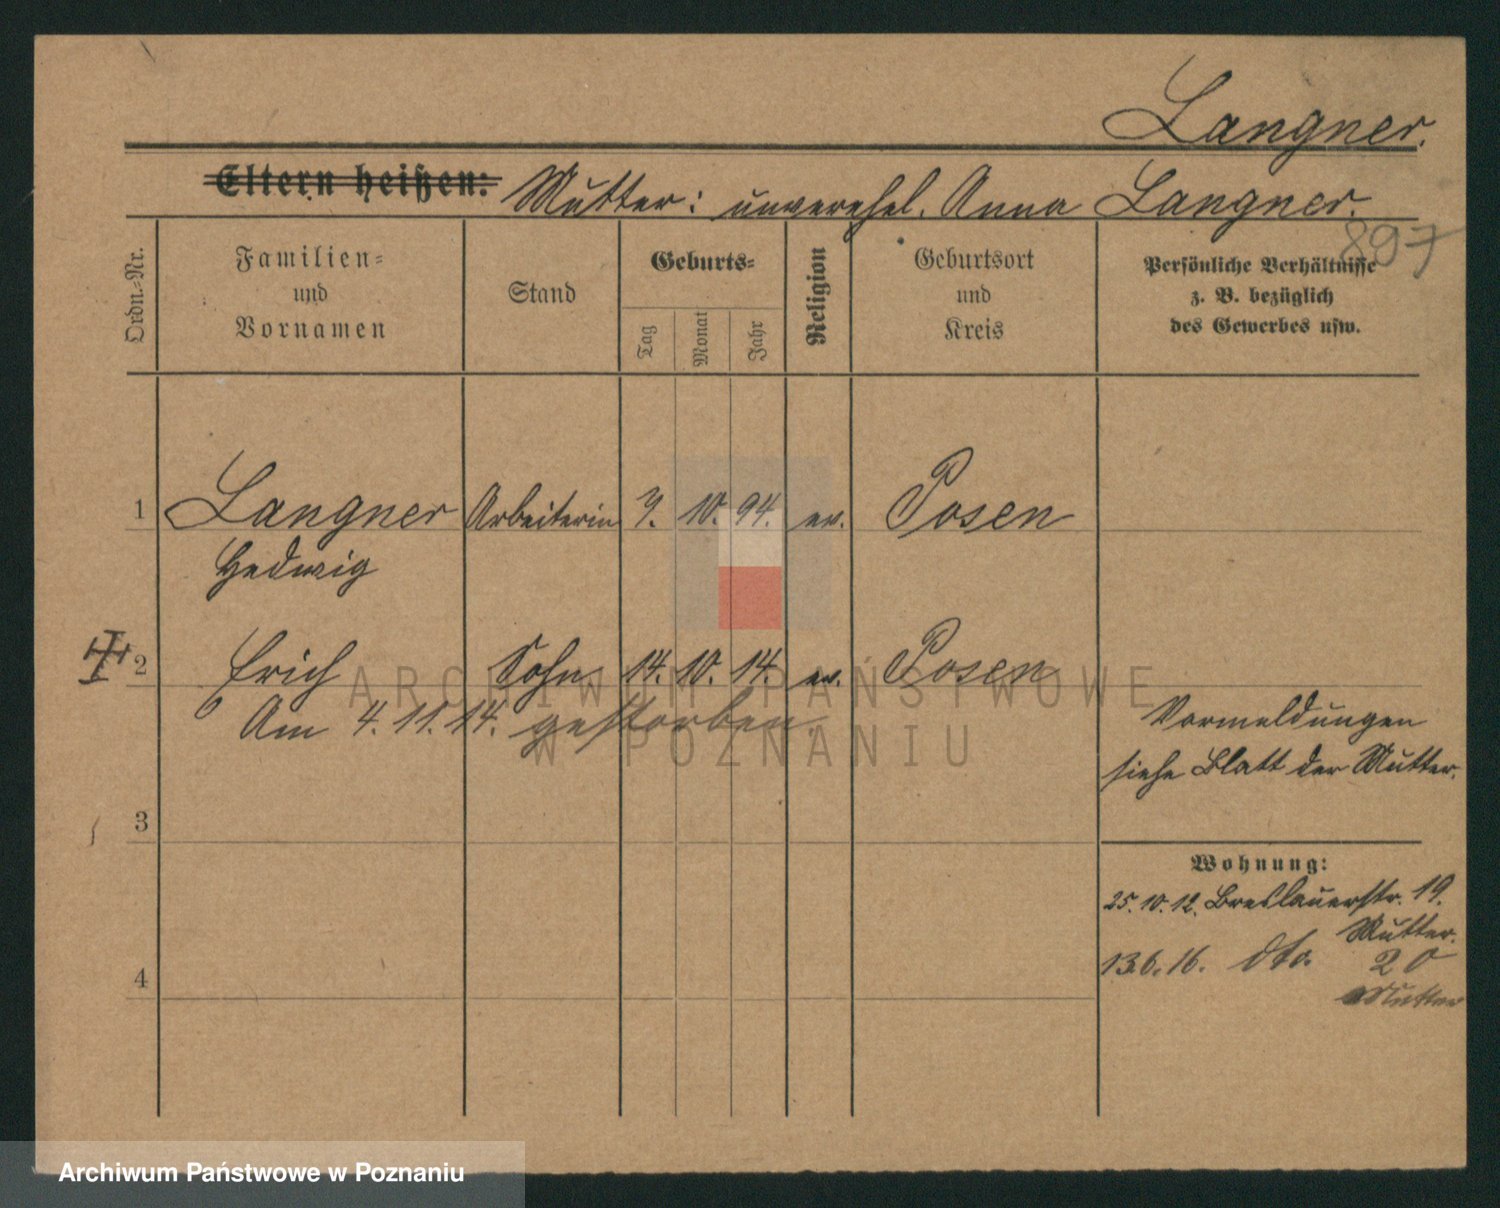 Langner.
Eltern heißen: Mutter: unverehel. Anna Langner.
897
Ordn.-Nr.
Familien-
und
Vornamen
Stand
Geburts-
Tag
Monat
Jahr
Religion
Geburtsort
und
Kreis
Persönliche Verhältnisse
z. B. bezüglich
des Gewerbes usw.
1 Langner Arbeiterin 10. 94. ev. Posen
Hedwig
2 Erich Sohn 14. 10. 14. ev. Posen
Am 4. 11. 14. gestorben.
Vormeldungen
siehe Blatt der Mutter.
3
Wohnung:
25. 10. 12. Breslauerstr. 19.
Mutter.
13.6.16. dto. 20
Mutter
4
ARCHIWUM PAŃSTWOWE
W POZNANIU
Archiwum Państwowe w Poznaniu